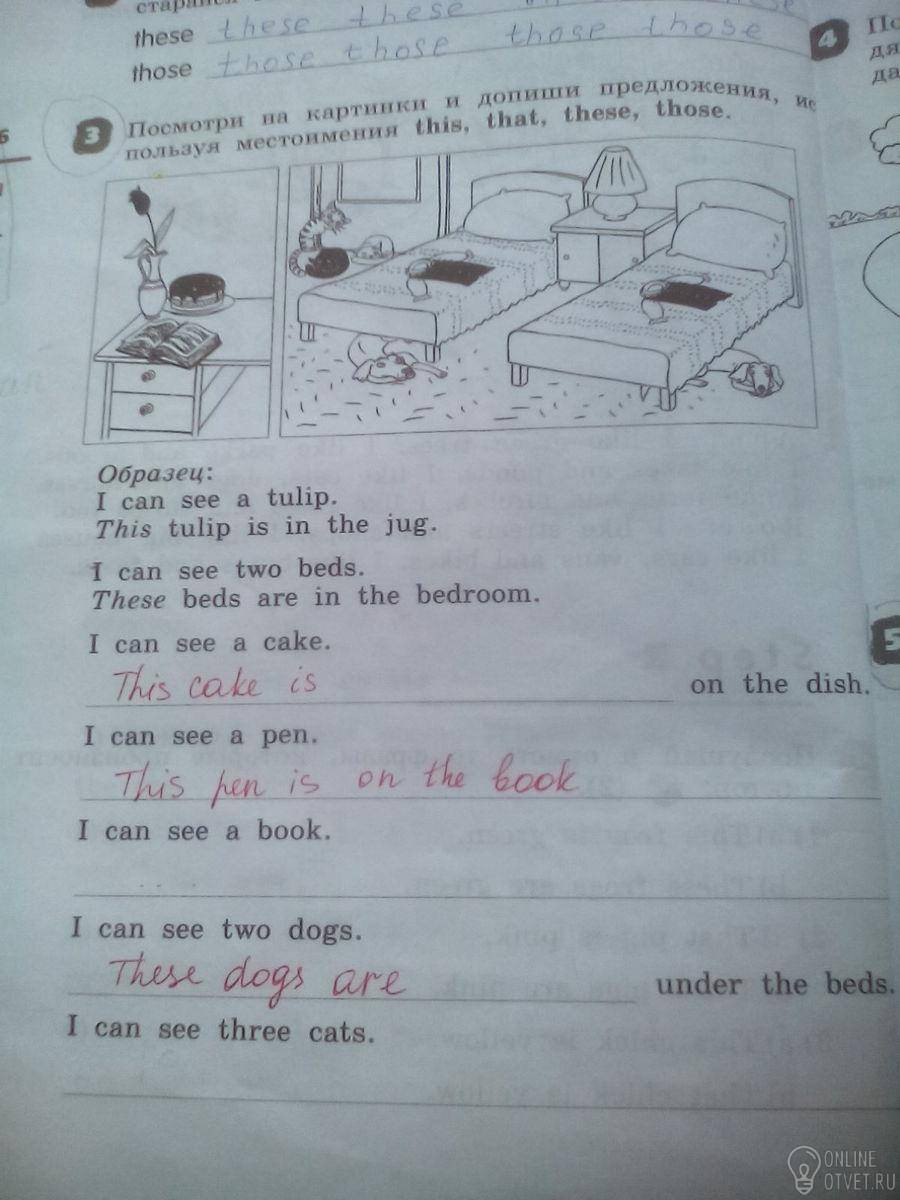 these these these
those those those those those
4
3 Посмотри на картинки и допиши предложения, ис
пользуя местоимения this, that, these, those.
Образец:
I can see a tulip.
This tulip is in the jug.
I can see two beds.
These beds are in the bedroom.
I can see a cake.
This cake is on the dish.
5
I can see a pen.
This pen is on the book
I can see a book.
I can see two dogs.
These dogs are under the beds.
I can see three cats.
ONLINE
OTVET.RU